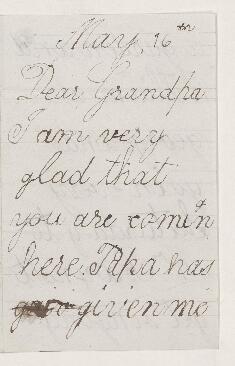 May, 16th
Dear, Grandpa
I am very
glad that
you are comin g
here. Papa has
givien me